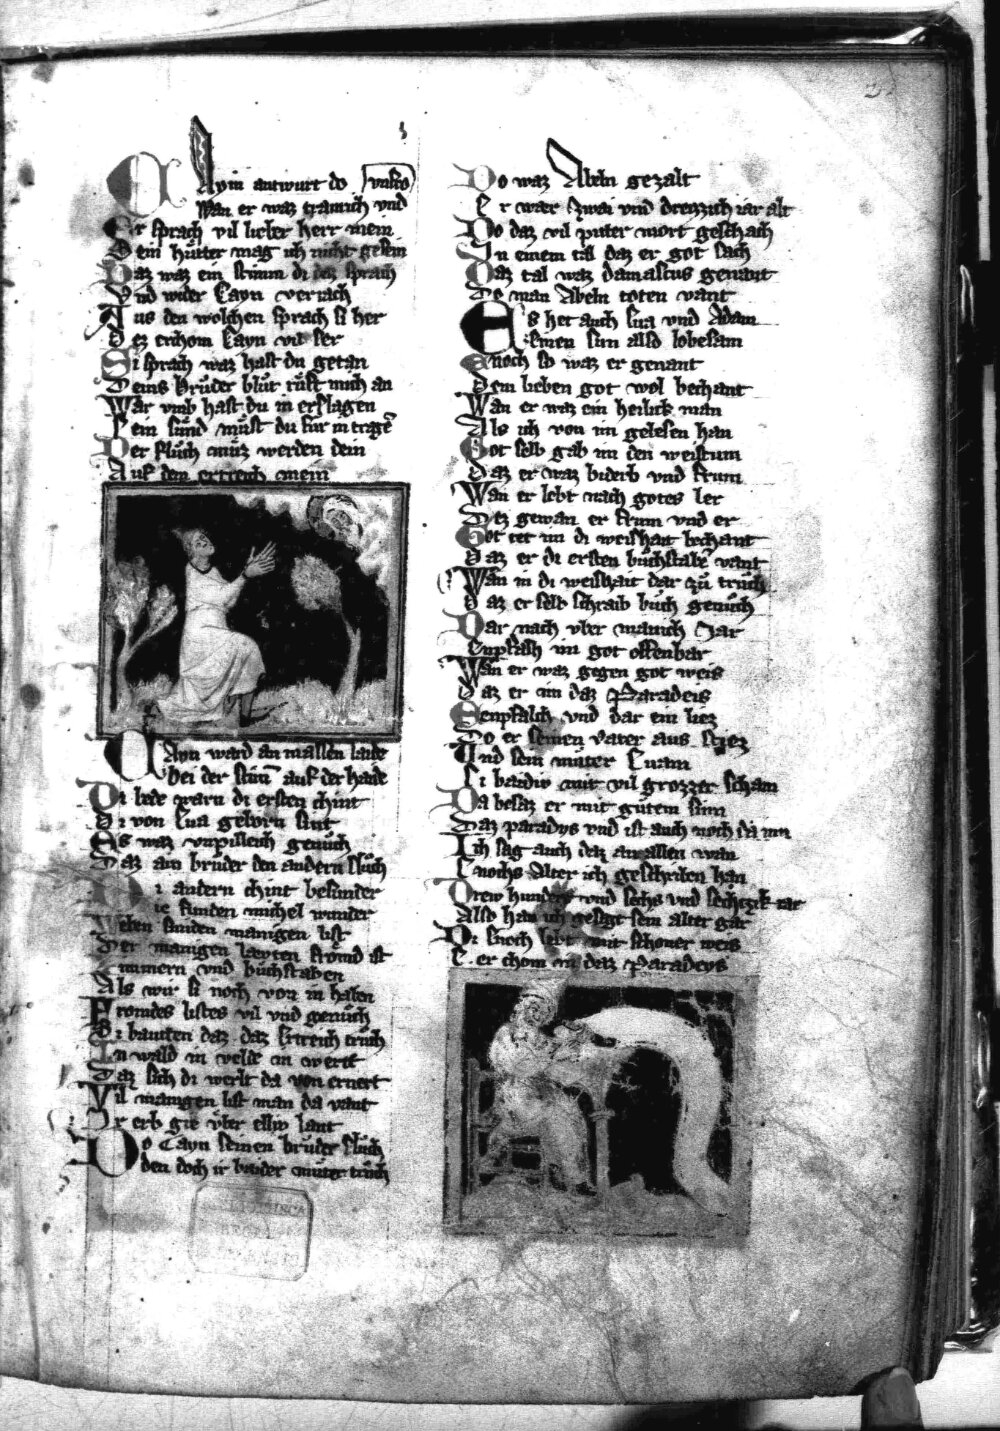 Caym antwurt do unfro
Wan er waz traurich vnd
Er sprach vil lieber herr mein
Sein hůtter mag ich nicht gesein
Daz waz ein stimm di daz sprach
Vnd wider Cayn verrach
Aus den wolchen sprach si her
Dez erchom Cayn vil ser
Si sprach waz hast du getan
Deins brůder blůt růft mich an
War vmb hast du in erslagen
Sein sůnd můst du fur in trage
Der flůch můz werden dein
Auf dem ertreich mein
Cayn ward an massen laide
Bei der stim auf der haide
Di bede warn di ersten chint
Di von Eua geborn sint
Es waz vnpilleich genůch
Daz ain brůder den andern slůch
Di andern chint besunder
Die funden michel wunder
funden manigen list
Der manigen lawten frömd ist
vnd bůchstaben
Als wir si noch von in haben
Fromdes listes vil vnd genůch
Si bauten daz daz ertreich trůch
In wald in velde in wert
Daz sich di werlt da von ernert
Vil manigen list man da vant
Ir erb gie vber elliv lant
Do Cayn seinen brůder slůch
den doch ir baider můter trůch
Do waz Abeln gezalt
Er waz zwai vnd dreizzich iar alt
Do daz vil puter mort geschach
In einem tal daz er got sach
Daz tal waz damascus genant
Do man Abeln toten vant
Es het auch Eua vnd Adam
Einen sun also lobesam
Enoch so waz er genant
Dem lieben got wol bechant
Wan er waz ein heilick man
Als ich von im gelesen han
Got selb gab im den weistum
Daz er waz biderb vnd frum
Wan er lebt nach gotes ler
Dez gewan er frum vnd er
Got tet im di weishait bechant
Daz er di ersten bůchstabe vant
Wan in di weishait dar zů trůch
Daz er selb schraib bůch genůch
Dar nach vber manich Jar
Enpfalh im got offenbar
Wan er waz gegen got weis
Daz er im daz Paradeis
Enpfalch vnd dar ein liez
Do er seinen Vater aus stiez
Und sein můter Euam
Si baidiv mit vil grozzer scham
Da besaz er mit gůtem sinn
Daz paradys vnd ist auch noch da inn
Ich sag auch daz an allen wan
Enochs Alter ich geschriben han
Drew hundert vnd sechs vnd sechczik iar
Also han ich gesagt sein alter gar
Di Enoch lebt mit schoner weis
E er chom in daz Paradeys